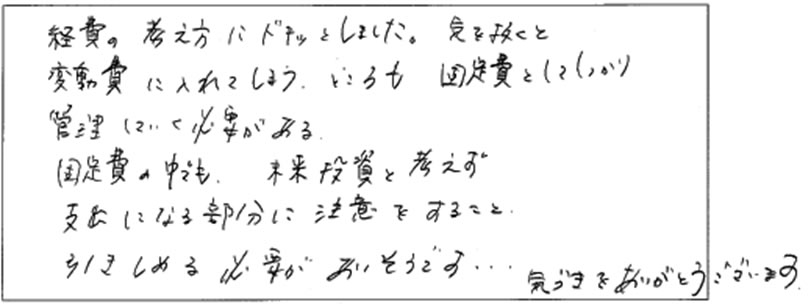 経費の考え方にドキッとしました。気を抜くと
変動費に入れてしまう、ところも 固定費としてしっかり
管理していく必要がある。
固定費の中でも、未来投資と考えず
支出になる部分に注意をすること。
引きしめる必要がありそうです… 気づきをありがとうございます。